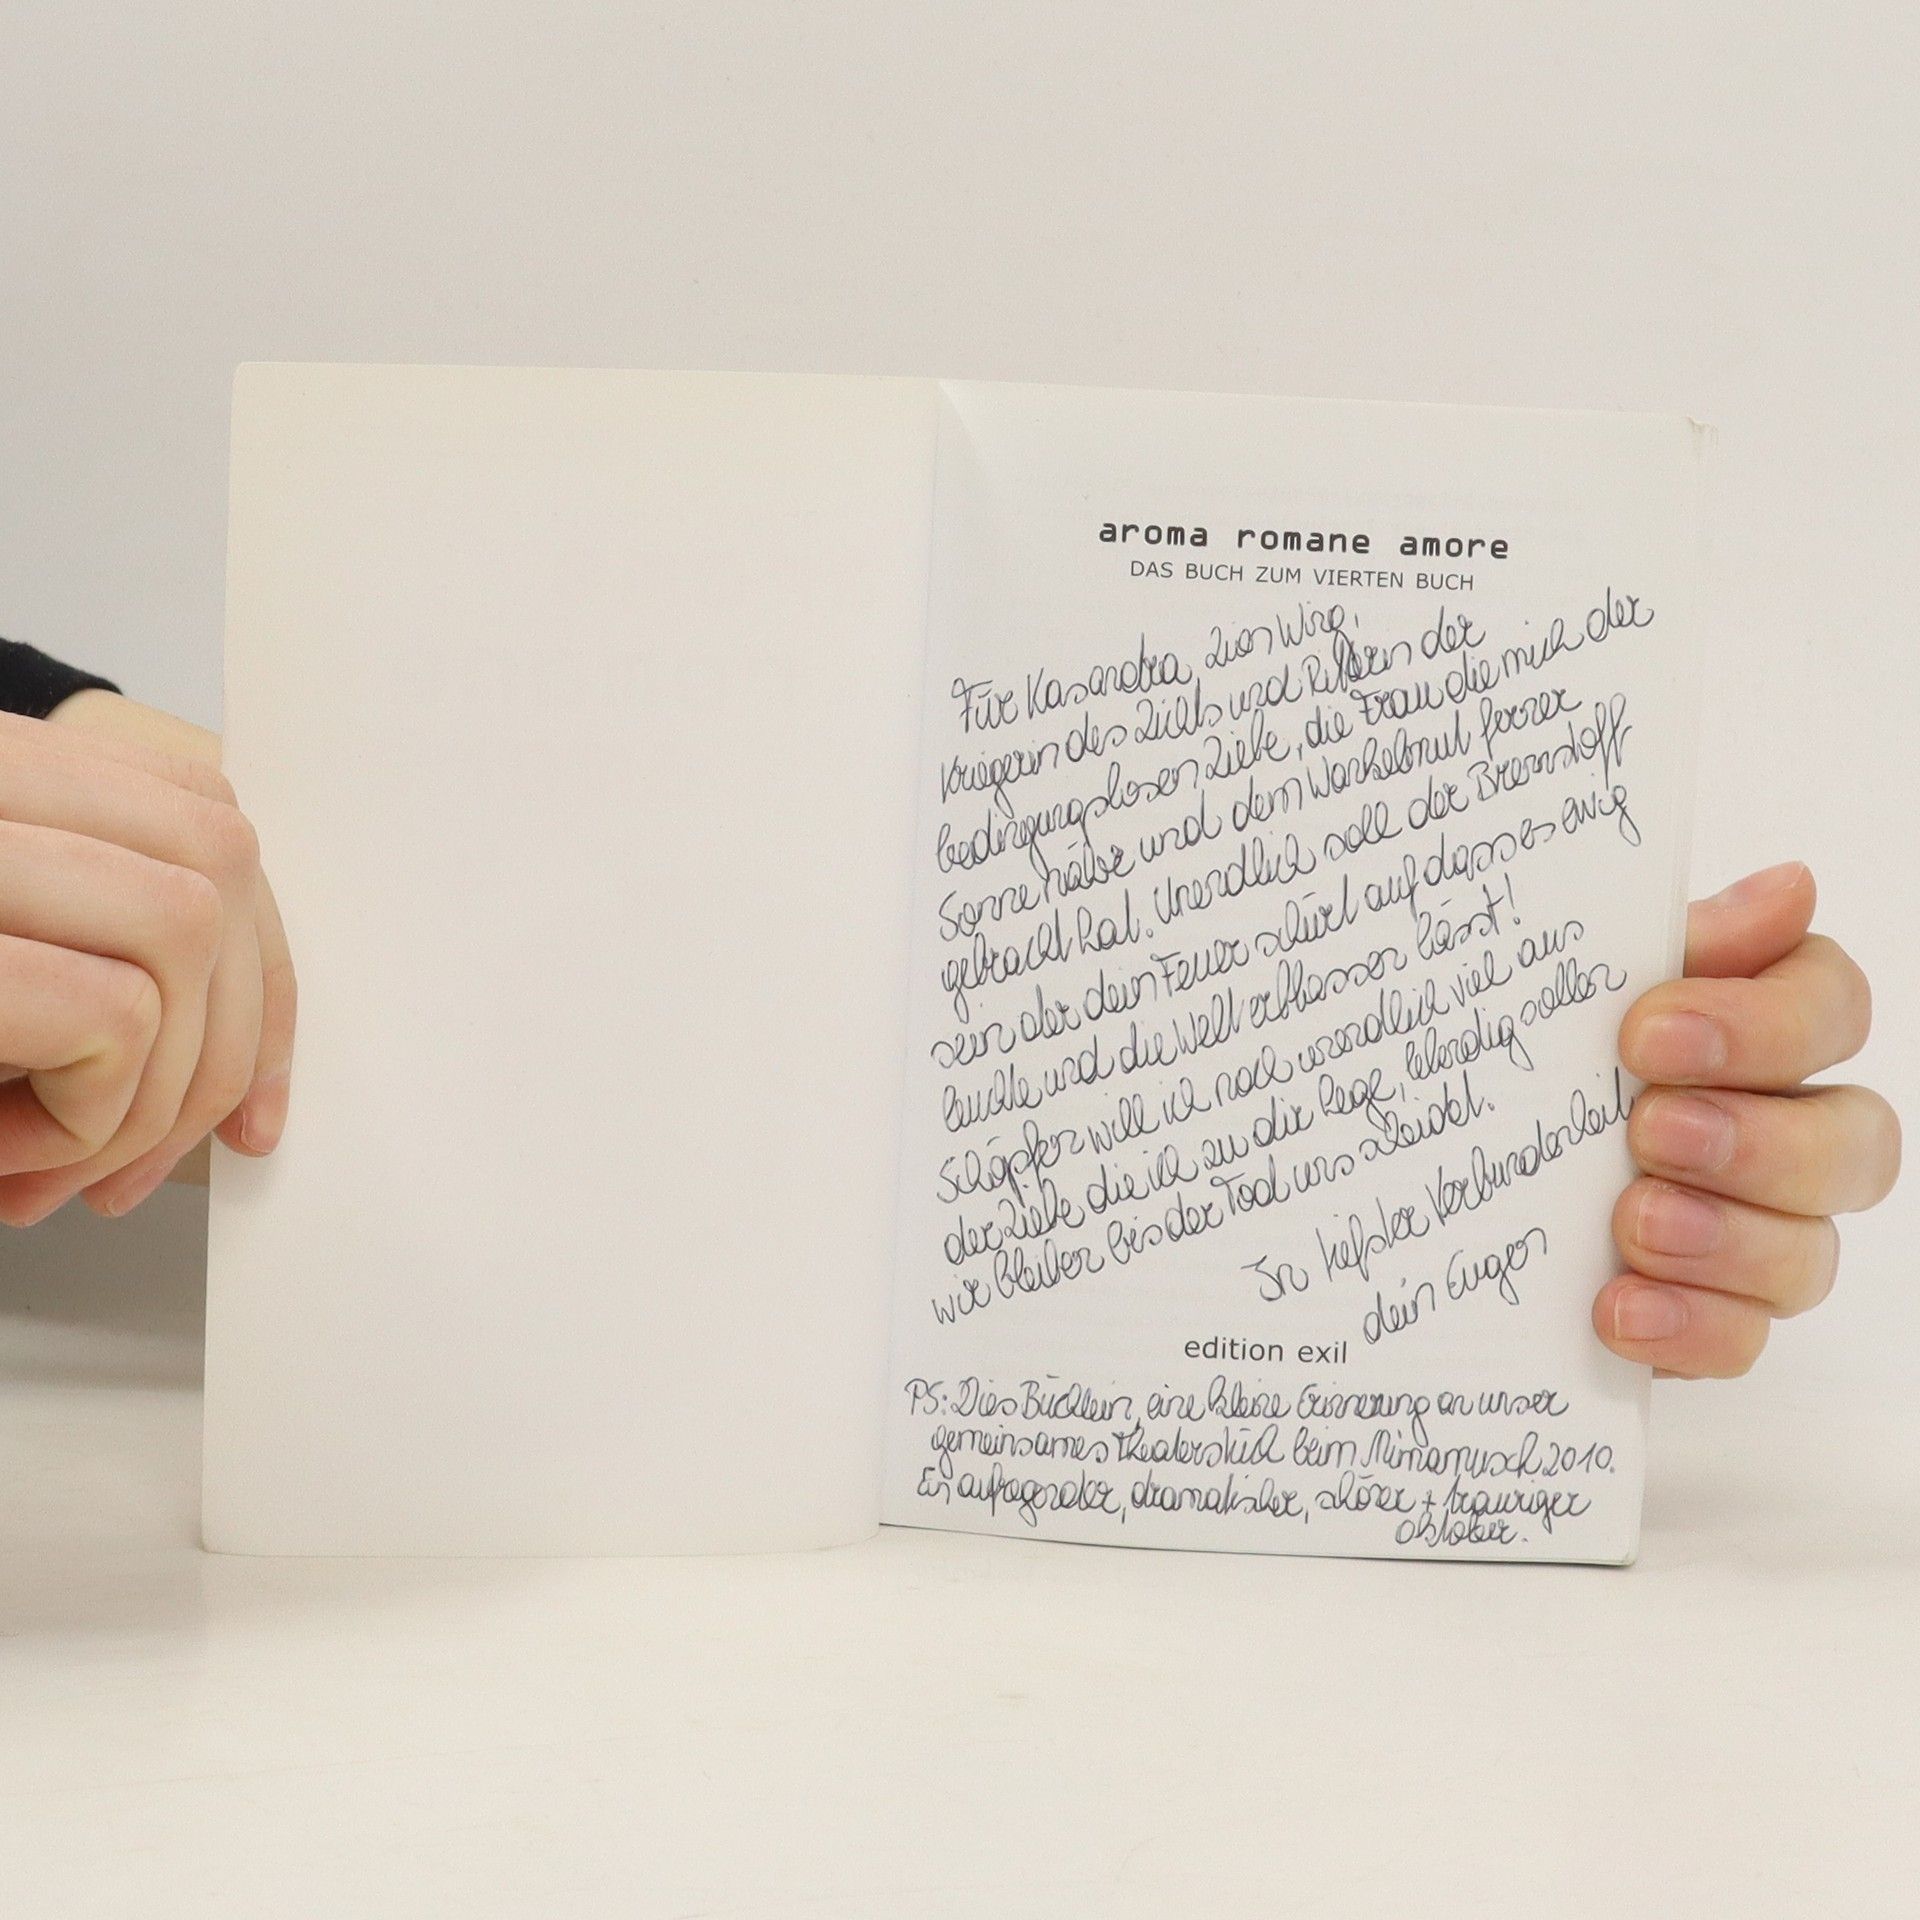 aroma romane amore
DAS BUCH ZUM VIERTEN BUCH
Für Kasandra Lion Wing,
Kriegerin des Lichts und Ritterin der
bedingungslosen Liebe, die Frau die mich der
Sonne näher und dem Wankelmut ferner
gebracht hat. Unendlich soll der Brennstoff
sein der dein Feuer schürt auf dass es ewig
leuchte und die Welt erblassen lässt!
Schöpfen will ich noch unendlich viel aus
der Liebe die ich zu dir hege, lebendig sollen
wir bleiben bis der Tod uns scheidet.
In tiefster Verbundenheit
dein Eugen
edition exil
PS: Dies Büchlein, eine kleine Erinnerung an unser
gemeinsames Theaterstück beim Mimamusch 2010.
Ein aufregender, dramatischer, schöner + trauriger
Oktober.